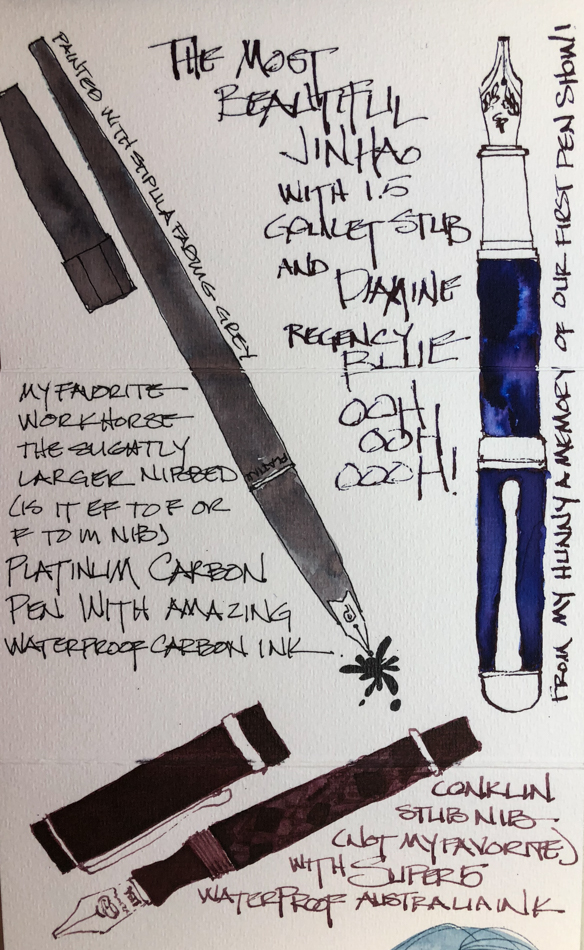 PAINTED WITH STIPULA FADING GREY
THE MOST
BEAUTIFUL
JINHAO
WITH 1.5
GOULET STUB
AND
DIAMINE
REGENCY
BLUE
OOH!
OOH!
OOOH!
FROM MY HUNNY A MEMORY OF OUR FIRST PEN SHOW!
MY FAVORITE
WORKHORSE
THE SLIGHTLY
LARGER NIBBED
(IS IT EF TO F OR
F TO M NIB)
PLATINUM CARBON
PEN WITH AMAZING
WATERPROOF CARBON INK.
PLATINUM
CONKLIN
STUB NIB
(NOT MY FAVORITE)
WITH SUPER5
WATERPROOF AUSTRALIA INK